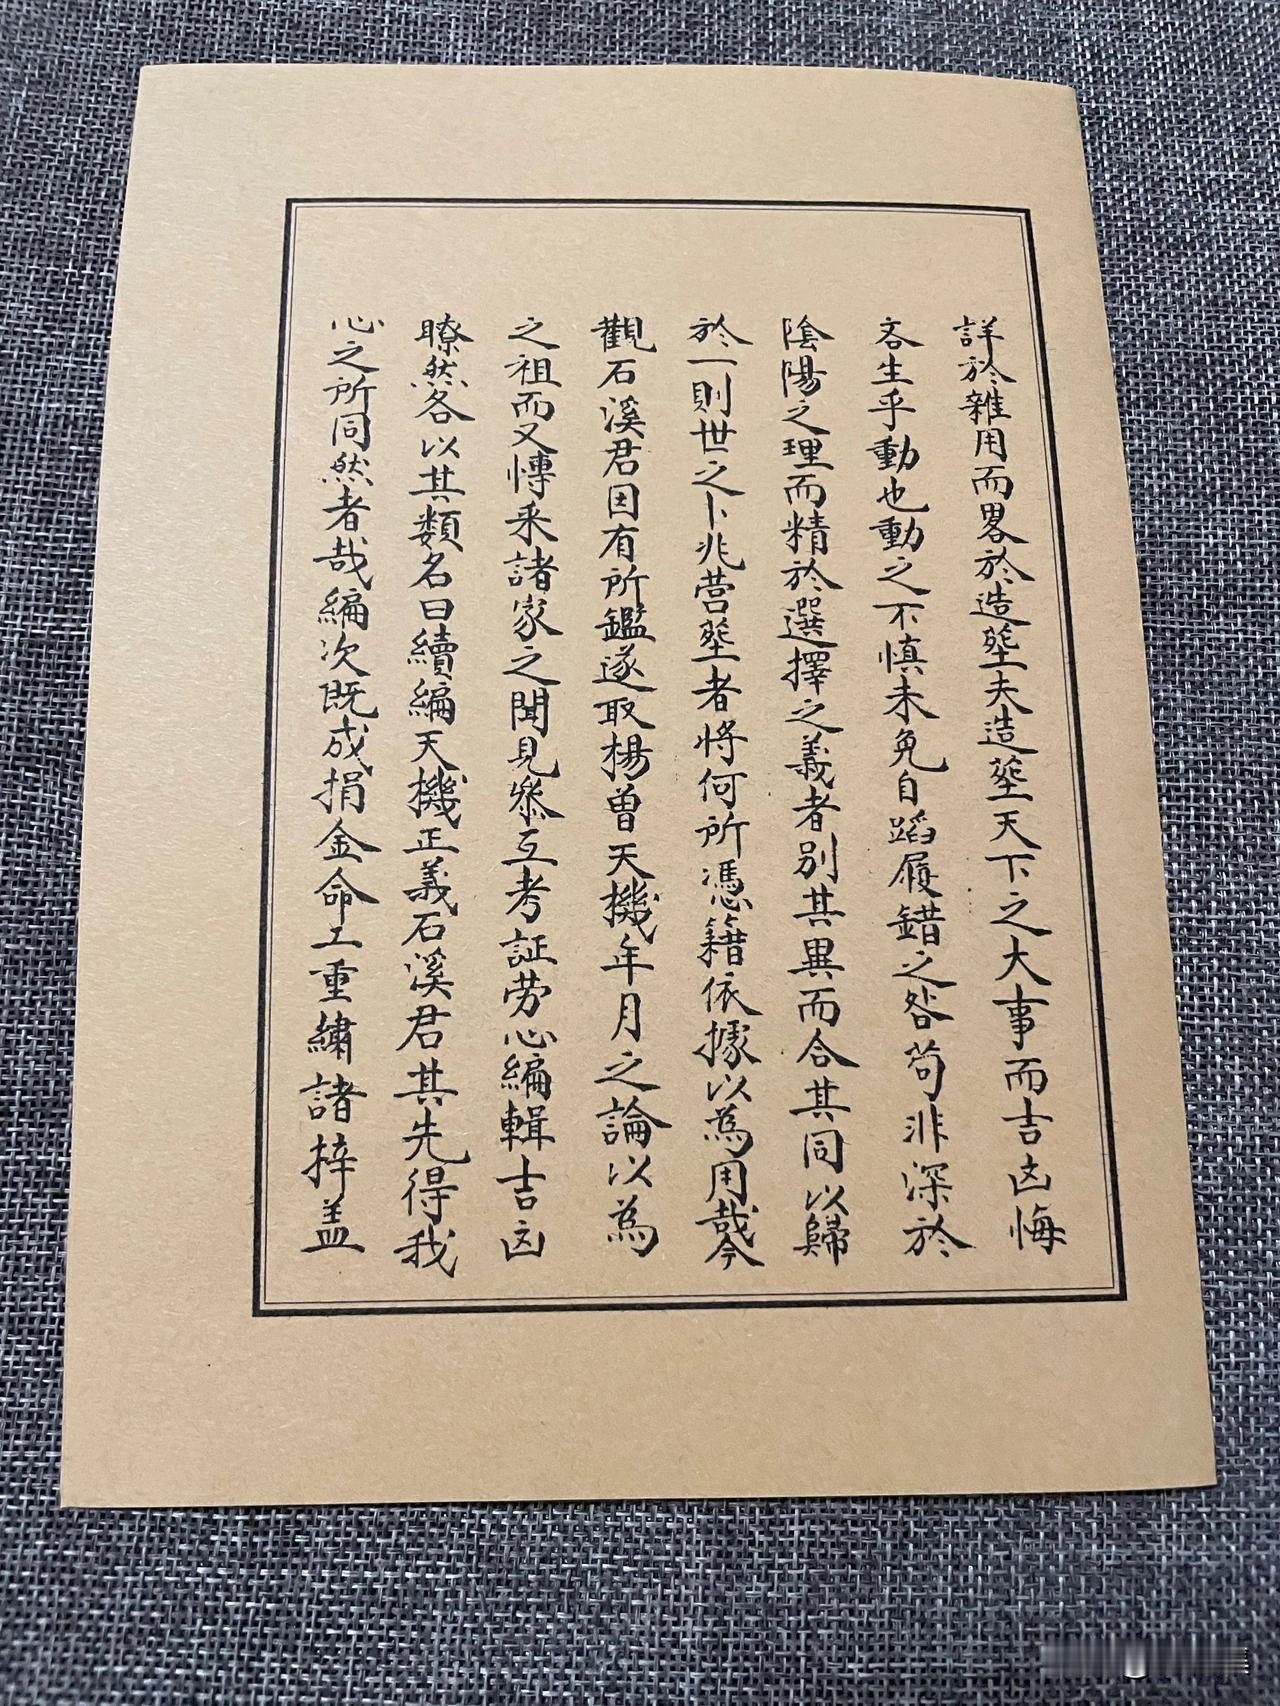 詳於雜用而畧於造塟夫造塟天下之大事而吉凶悔
吝生乎動也動之不慎未免自蹈履錯之咎苟非深於
陰陽之理而精於選擇之義者別其異而合其同以歸
於一則世之卜兆营塟者將何所憑籍依據以為用哉今
觀石溪君因有所鑑遂取楊曾天機年月之論以為
之祖而又慱采諸家之聞見叅互考証劳心編輯吉凶
瞭然各以其類名曰續編天機正義石溪君其先得我
心之所同然者哉編次既成捐金命工重繡諸梓盖